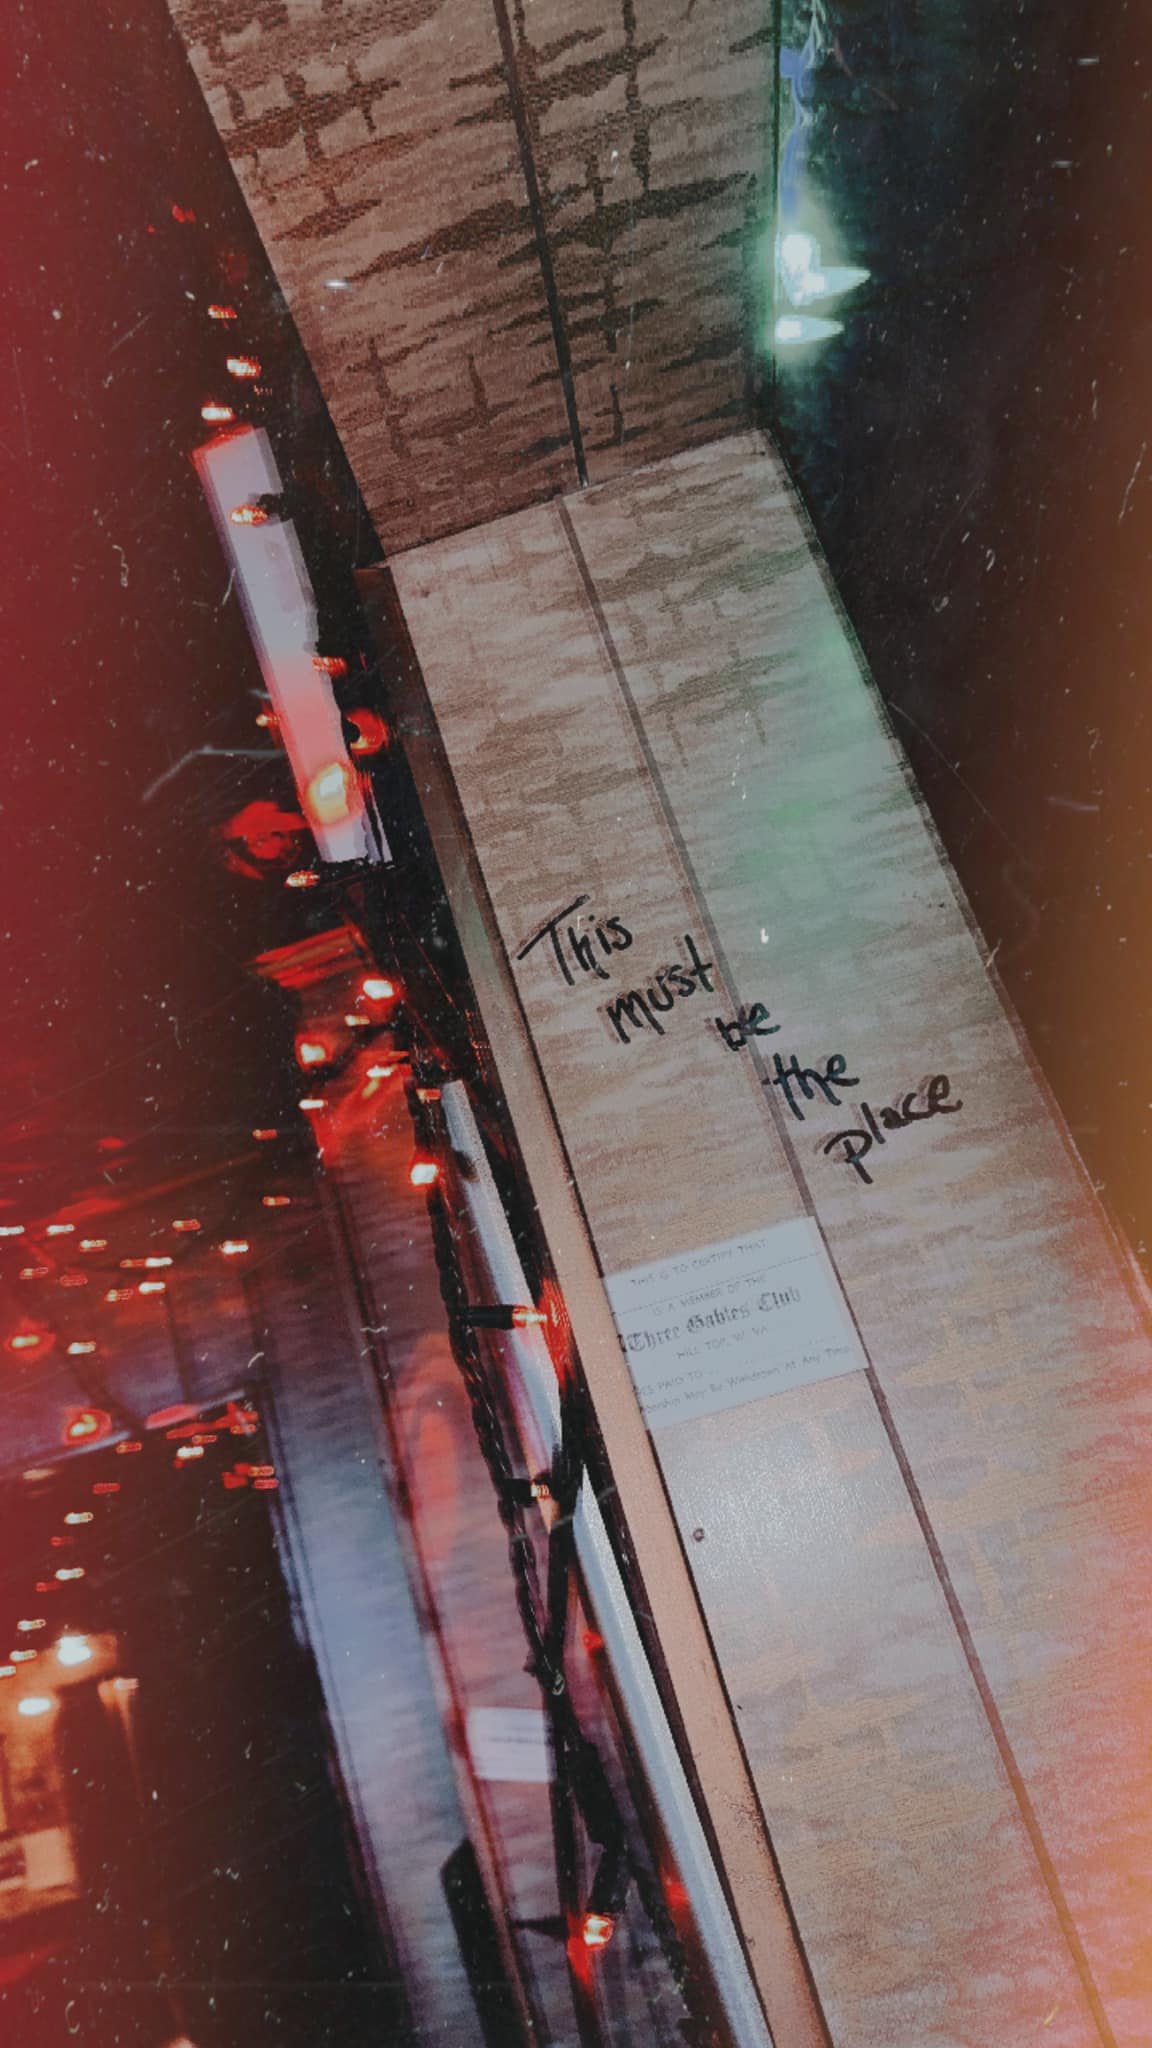 This
must
be
the
place
THIS IS TO CERTIFY THAT
IS A MEMBER OF THE
Three Gables Club
HILL TOP, W. VA.
PAID TO
May Be Withdrawn At Any Time